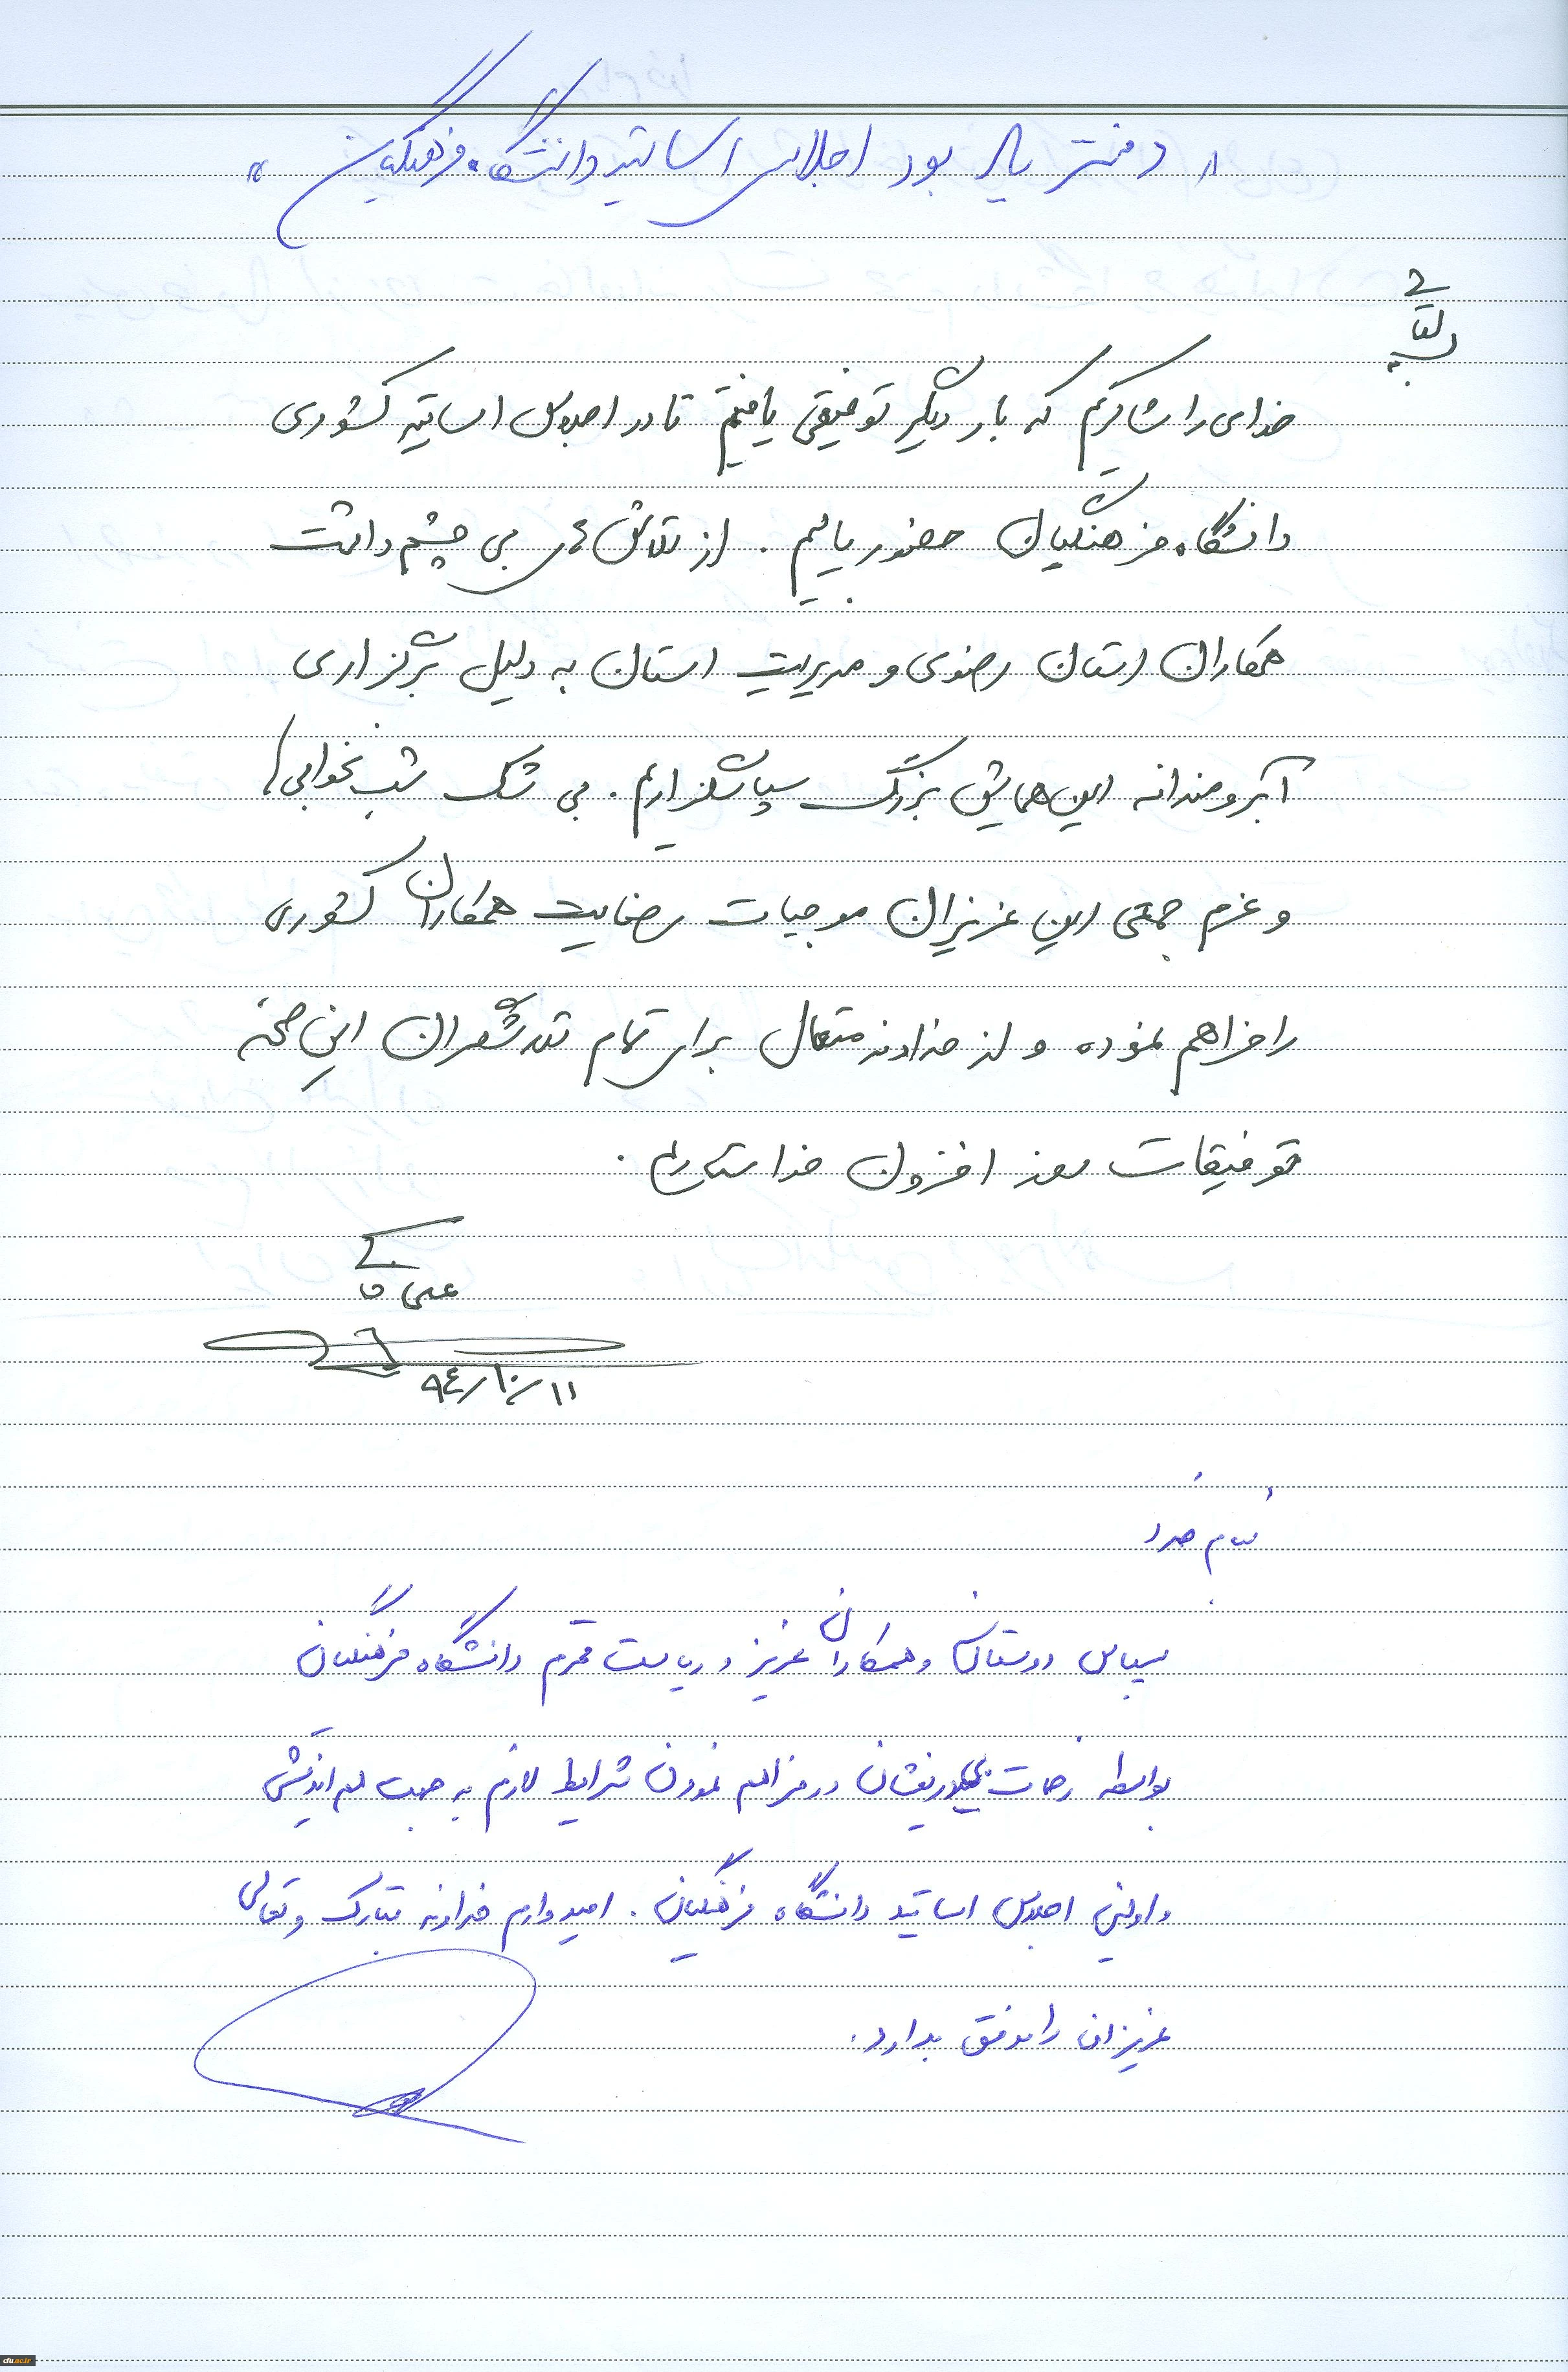 « دفتر یاد بود اجلاس اساتید دانشگاه فرهنگیان »
بسمه تعالی
خدای را شاکریم که بار دیگر توفیقی یافتیم تا در اجلاس اساتید کشوری
دانشگاه فرهنگیان حضور یابیم . از تلاش های بی چشم داشت
همکاران استان رضوی و مدیریت استان به دلیل برگزاری
آبرومندانه این همایش بزرگ سپاسگزاریم . بی شک شب نخوابی ها
و عزم جمعی این عزیزان موجبات رضایت همکاران کشوری
را فراهم نموده و از خداوند متعال برای تمام تلاشگران این صحنه
توفیقات روز افزون خواستاریم .
علی
۹٤/۱۰/۱۱
بنام خدا
سپاس دوستان و همکاران عزیز و ریاست محترم دانشگاه فرهنگیان
بواسطه زحمات بیدریغشان در فراهم نمودن شرایط لازم به جهت هم اندیشی
و اولین اجلاس اساتید دانشگاه فرهنگیان . امیدوارم خداوند تبارک و تعالی
عزیزان را موفق بدارد .
cfu.ac.ir